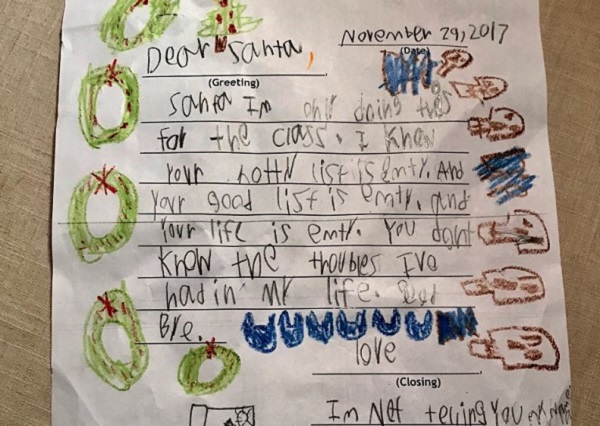 November 29, 2017
(Date)
Dear Santa,
(Greeting)
Santa Im only doing this
for the class. I Know
Your notty list is emty. And
Your good list is emty. and
Your life is emty. You dont
Know the troubles Ive
had in my life. Good
Bye.
love
,
(Closing)
Im Not telling you my name